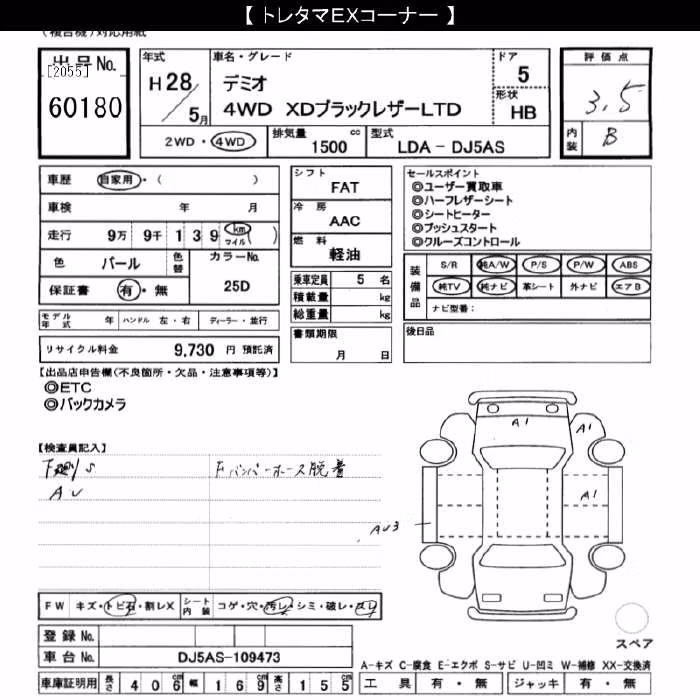 【 トレタマEXコーナー 】
(複合機)対応用紙
出品No.
[2055]
60180
年式
H28/5月
車名・グレード
デミオ
4WD XDブラックレザーLTD
ドア
5
形状
HB
2WD・4WD
排気量 1500 cc
型式 LDA - DJ5AS
評価点
3.5
内装 B
車歴 自家用・( )
車検 年 月
走行 9万 9千 1 3 9 km マイル ( )
色 パール 色替 カラーNo.
保証書 有・無 25D
モデル年式 年 ハンドル 左・右 ディーラー・並行
リサイクル料金 9,730 円 預託済
シフト
FAT
冷房
AAC
燃料
軽油
乗車定員 5 名
積載量 kg
総重量 kg
書類期限
月 日
セールスポイント
◎ユーザー買取車
◎ハーフレザーシート
◎シートヒーター
◎プッシュスタート
◎クルーズコントロール
装備品
S/R 純A/W P/S P/W ABS
純TV 純ナビ 革シート 外ナビ エアB
ナビ型番:
後日品
【出品店申告欄(不良箇所・欠品・注意事項等)】
◎ETC
◎バックカメラ
【検査員記入】
下廻りS
AU
Fバンパーホース脱着
A1
A1
A1
AU3
FW キズ・トビ石・割レX シート内装 コゲ・穴・汚レ・シミ・破レ・スレ
登録No.
車台No. DJ5AS-109473
車庫証明用 長さ 4 0 6 cm 幅 1 6 9 cm 高さ 1 5 5 cm
スペア
A-キズ C-腐食 E-エクボ S-サビ U-凹ミ W-補修 XX-交換済
工具 有・無 ジャッキ 有・無